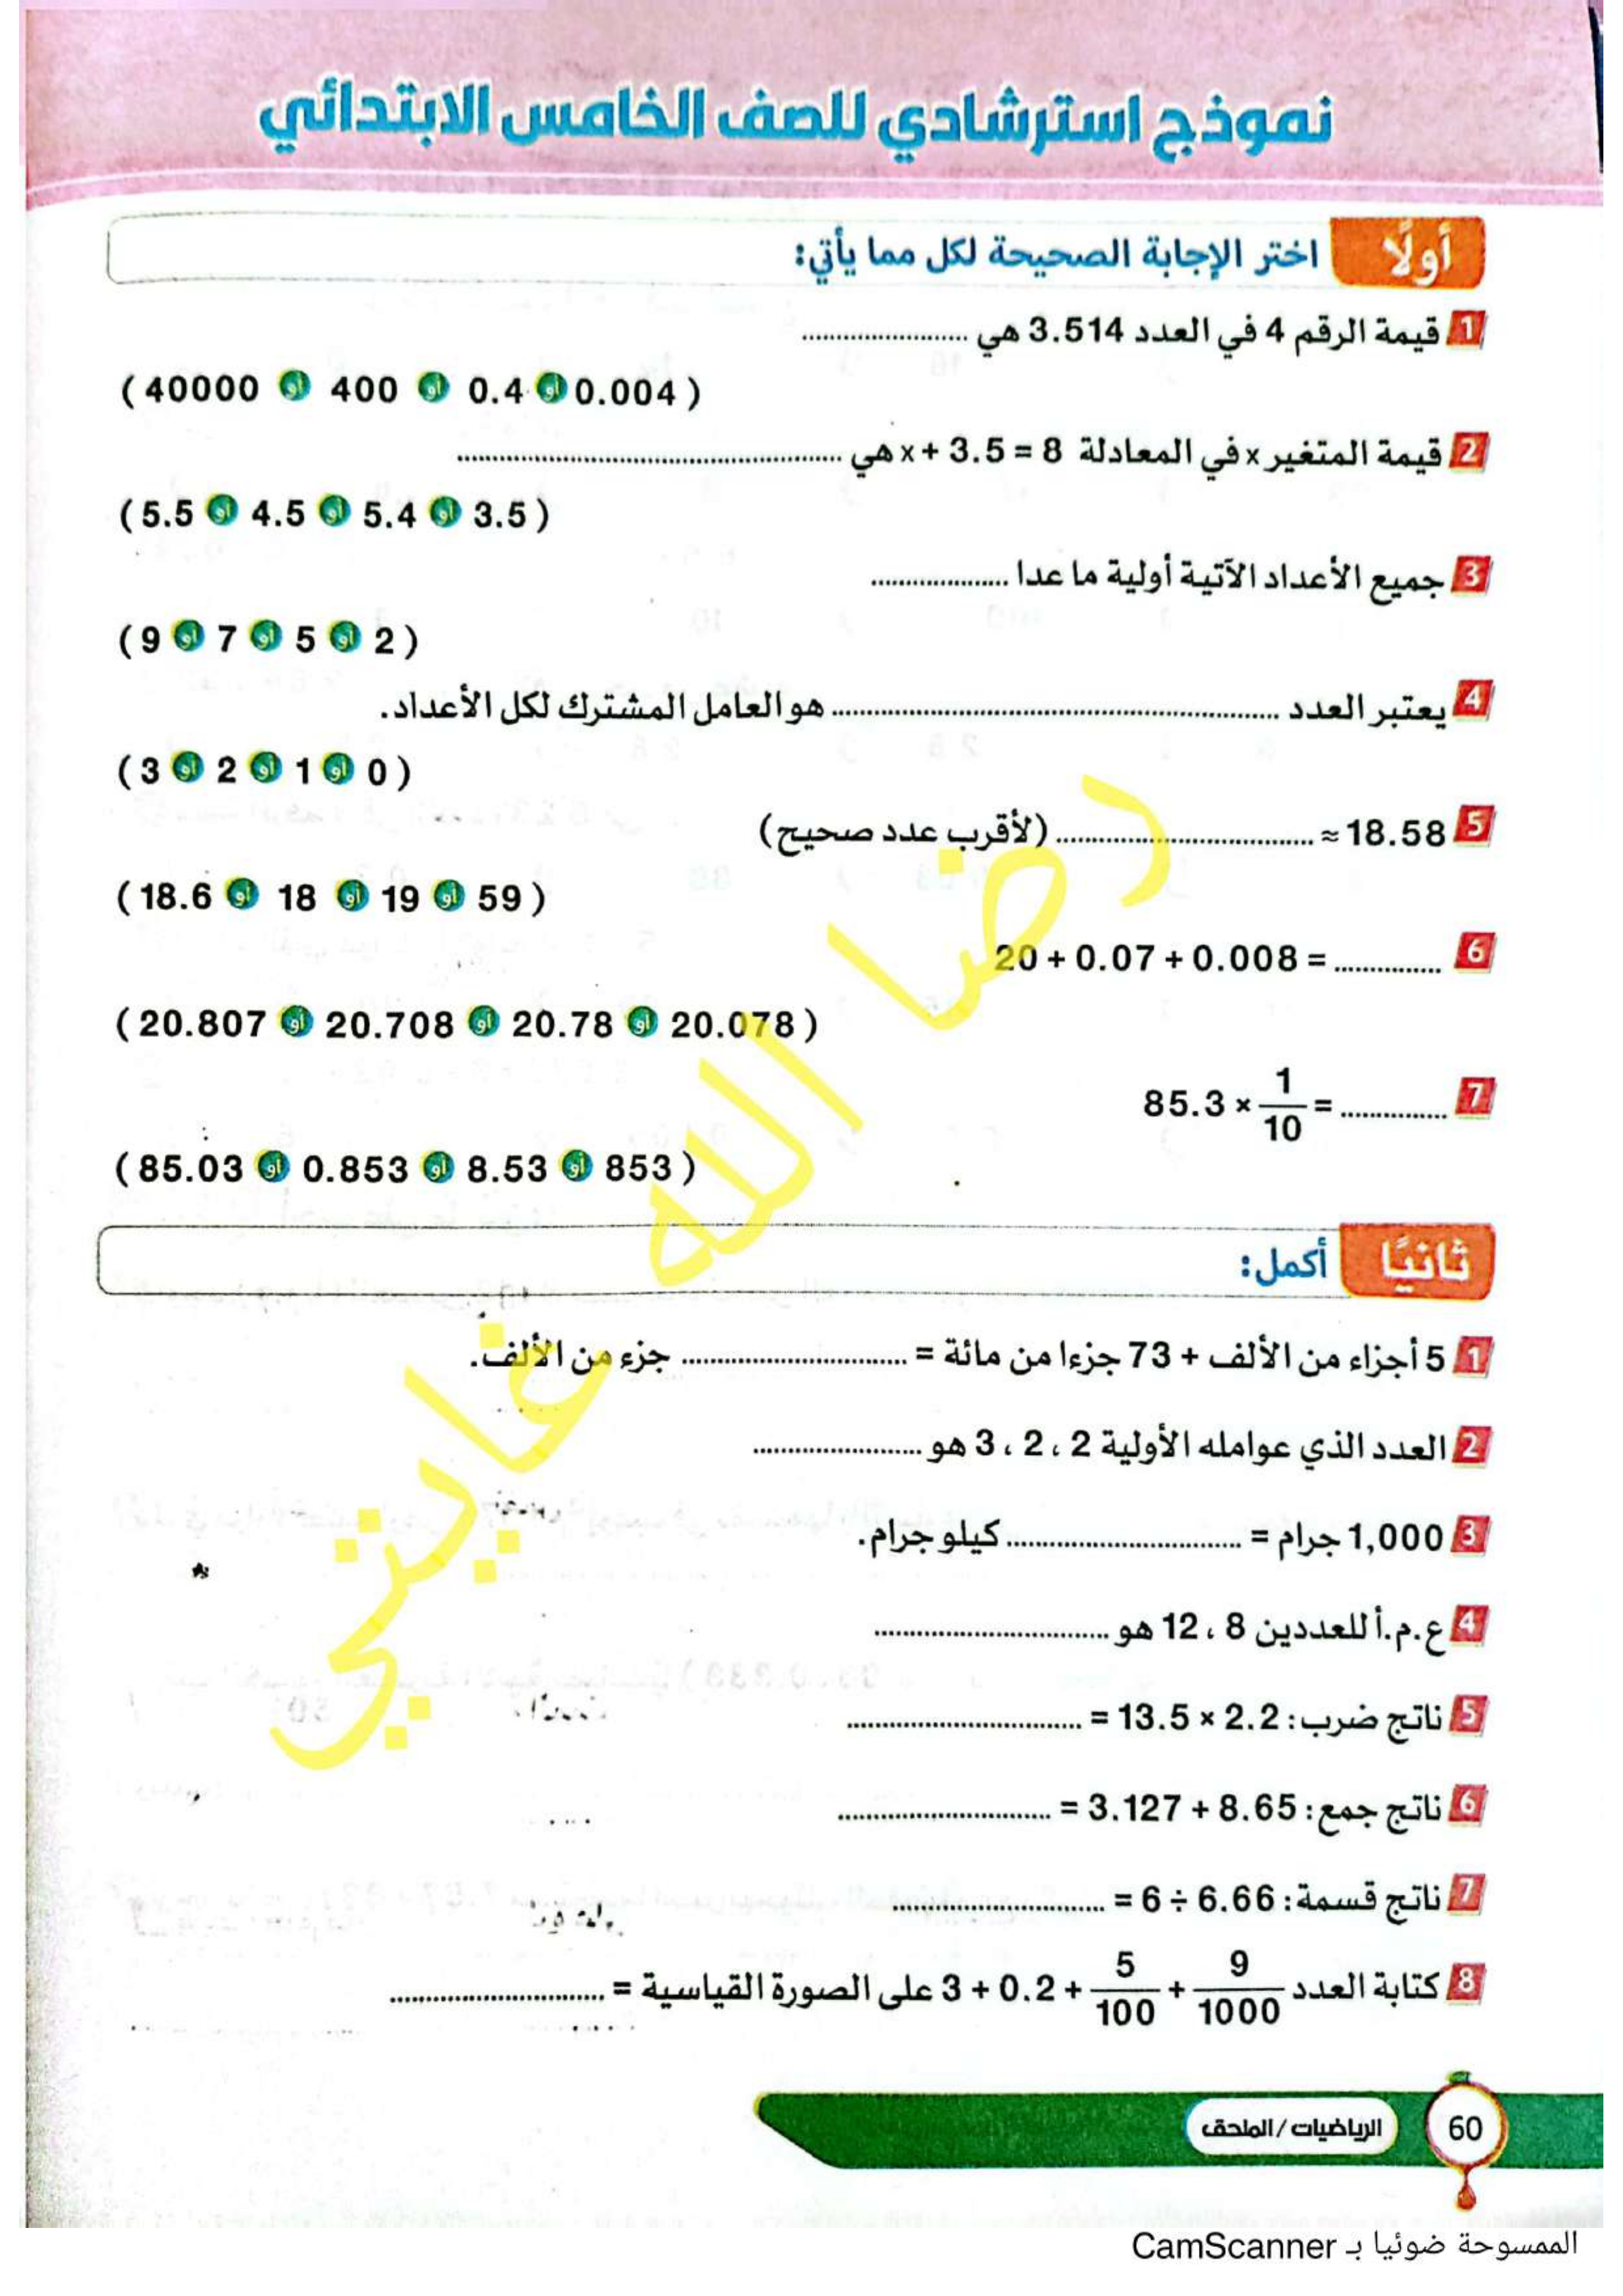 نموذج استرشادي للصف الخامس الابتدائي
أولًا اختر الإجابة الصحيحة لكل مما يأتي:
1 قيمة الرقم 4 في العدد 3.514 هي ....................
( 40000 أو 400 أو 0.4 أو 0.004 )
2 قيمة المتغير x في المعادلة x + 3.5 = 8 هي ....................
( 5.5 أو 4.5 أو 5.4 أو 3.5 )
3 جميع الأعداد الآتية أولية ما عدا ....................
( 9 أو 7 أو 5 أو 2 )
4 يعتبر العدد .................... هو العامل المشترك لكل الأعداد.
( 3 أو 2 أو 1 أو 0 )
5 18.58 ≈ .................... (لأقرب عدد صحيح)
( 18.6 أو 18 أو 19 أو 59 )
6 20 + 0.07 + 0.008 = ..............
( 20.807 أو 20.708 أو 20.78 أو 20.078 )
7 85.3 × 1/10 = ..............
( 85.03 أو 0.853 أو 8.53 أو 853 )
ثانيًا أكمل:
1 5 أجزاء من الألف + 73 جزءا من مائة = .................... جزء من الألف.
2 العدد الذي عوامله الأولية 2 ، 2 ، 3 هو ....................
3 1,000 جرام = .................... كيلو جرام.
4 ع.م.أ للعددين 8 ، 12 هو ....................
5 ناتج ضرب: 13.5 × 2.2 = ....................
6 ناتج جمع: 3.127 + 8.65 = ....................
7 ناتج قسمة: 6.66 ÷ 6 = ....................
8 كتابة العدد 3 + 0.2 + 5/100 + 9/1000 على الصورة القياسية = ....................
رضا الله غايتي
60 الرياضيات / الملحق
الممسوحة ضوئيا بـ CamScanner